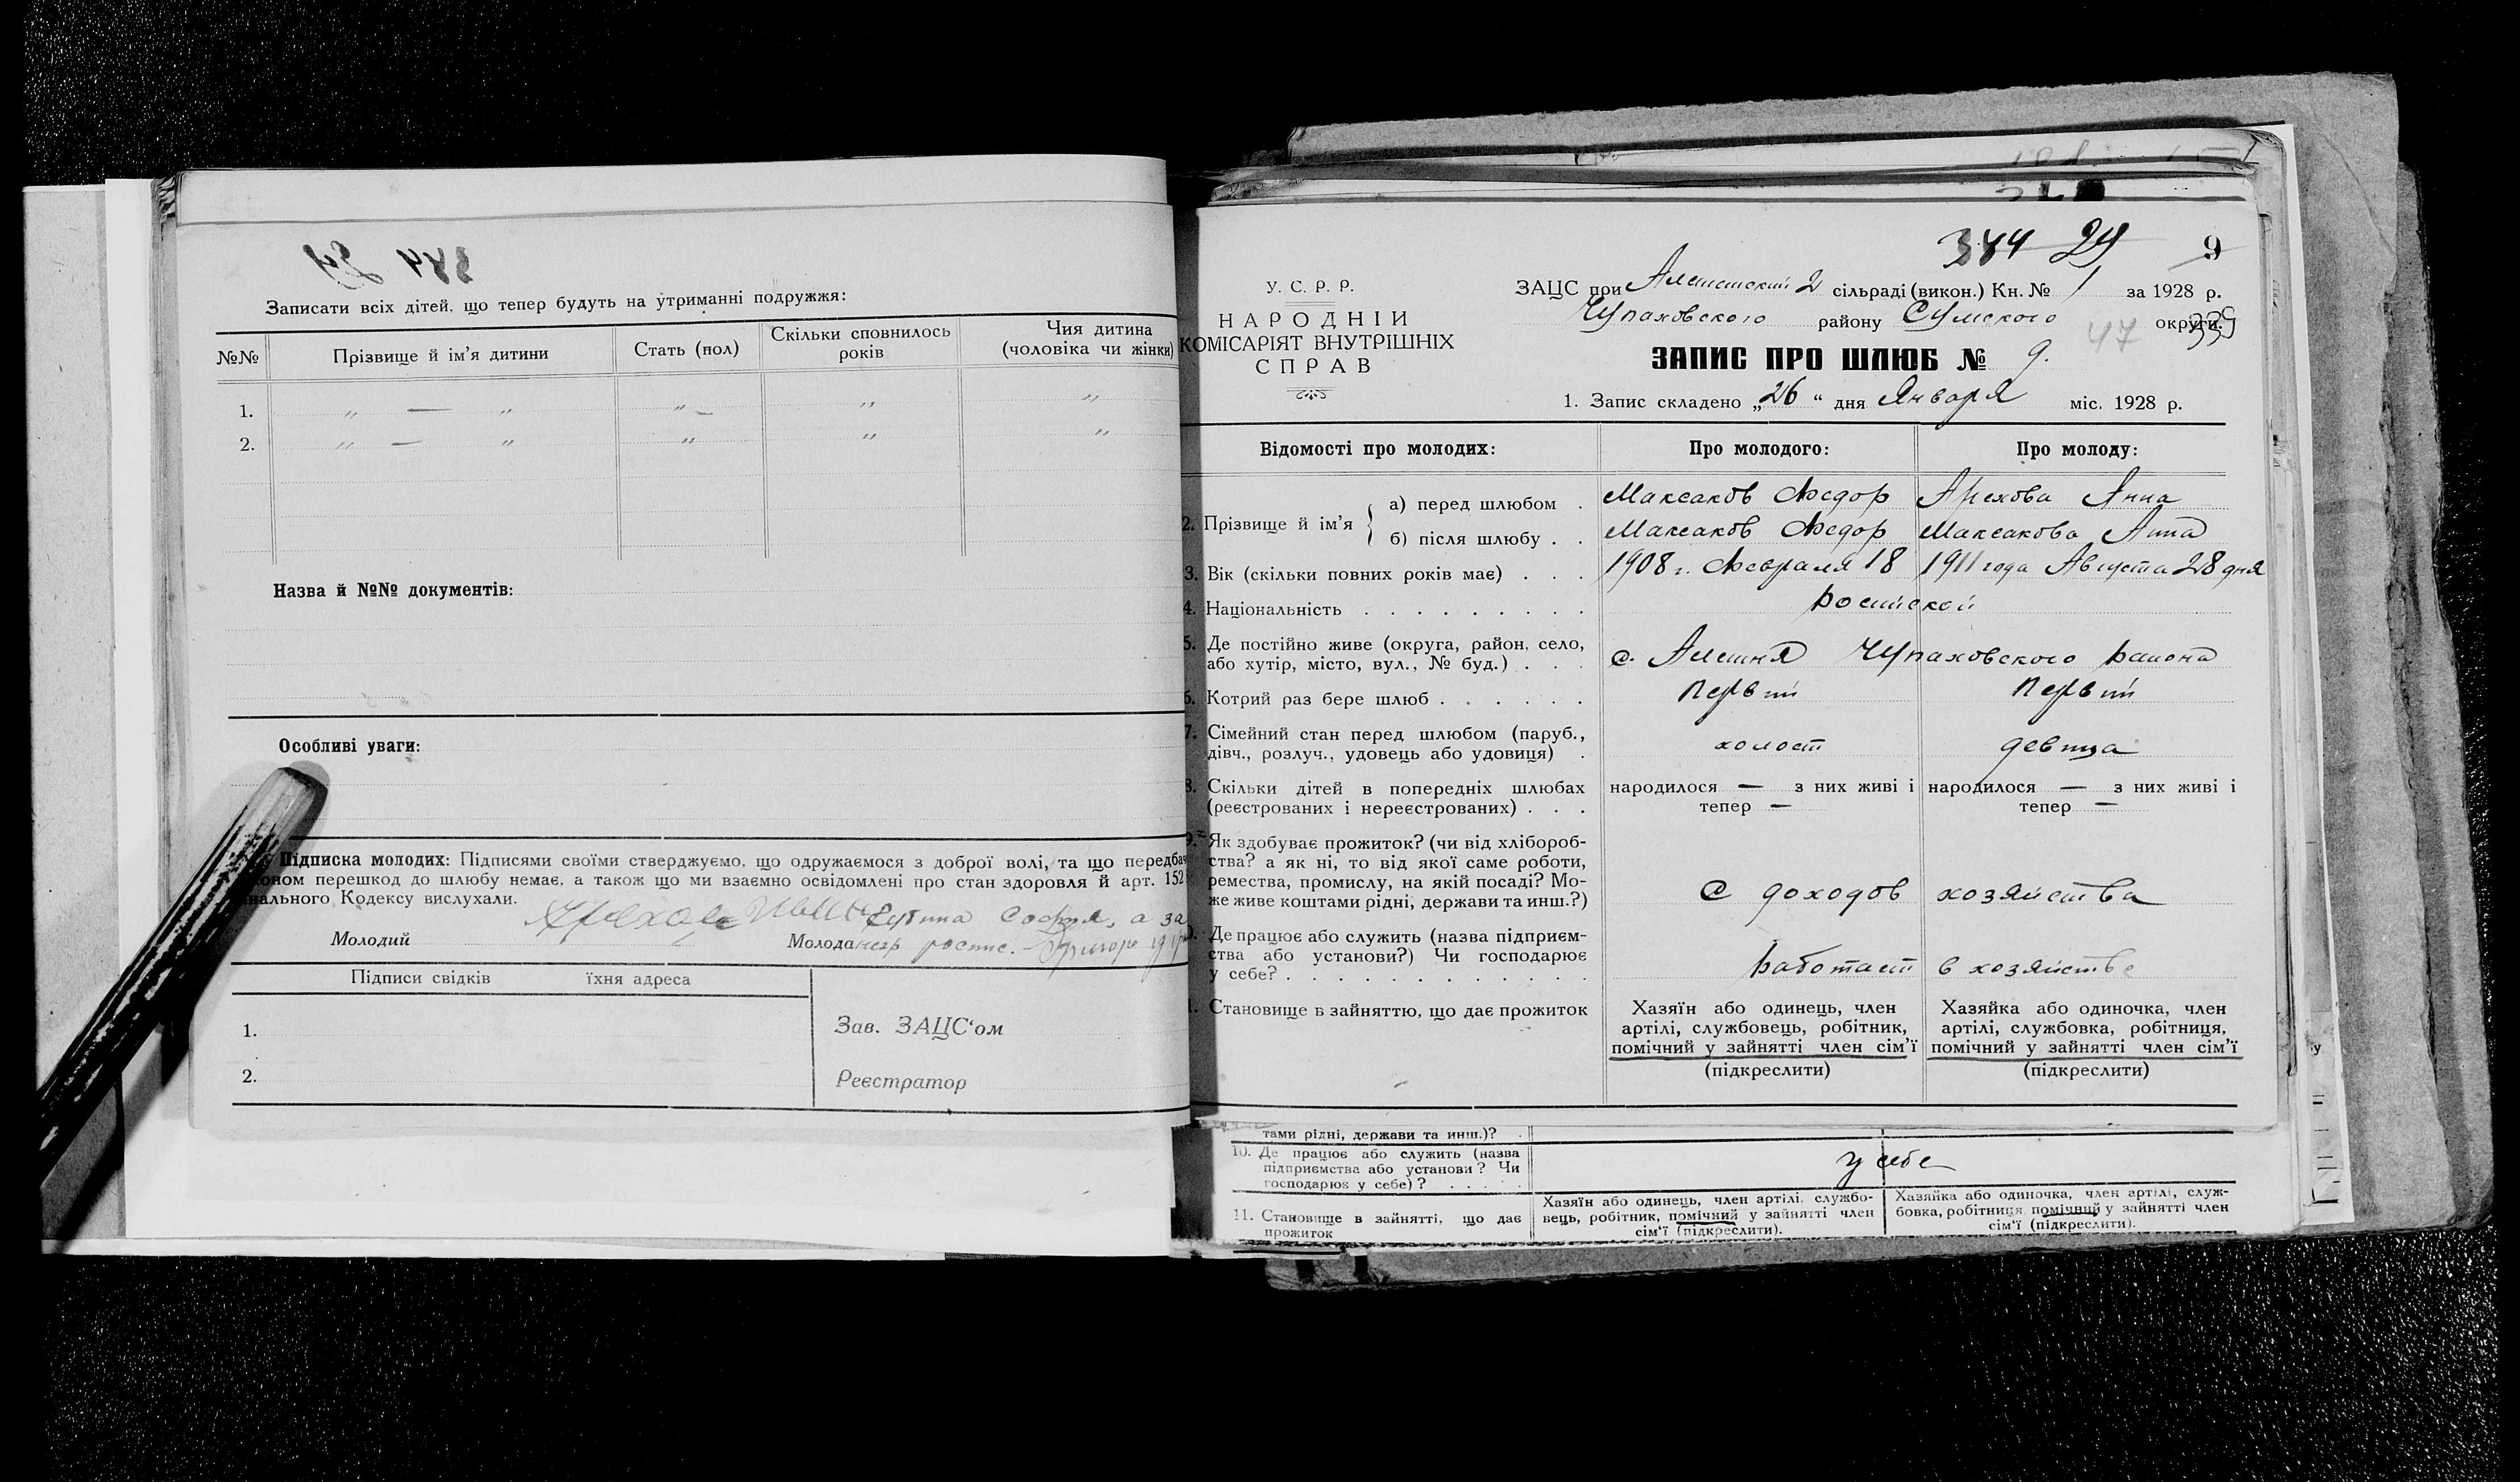 384 24
Записати всіх дітей, що тепер будуть на утриманні подружжя:
№№ Прізвище й ім'я дитини Стать (пол) Скільки сповнилось років Чия дитина (чоловіка чи жінки)
1. „ — „ „ — „ „
2. „ — „ „ „ „
Назва й №№ документів:
Особливі уваги:
Підписка молодих: Підписями своїми стверджуємо, що одружаємося з доброї волі, та що передбач
коном перешкод до шлюбу немає, а також що ми взаємно освідомлені про стан здоровля й арт. 152
нального Кодексу вислухали.
София, а за
Молодий Молода
Підписи свідків їхня адреса
1.
2.
Зав. ЗАЦС'ом
Реєстратор
384 24 9
У. С. Р. Р.
НАРОДНІЙ
КОМІСАРІЯТ ВНУТРІШНІХ
СПРАВ
ЗАЦС при Алешнский 2 сільраді (викон.) Кн. № 1 за 1928 р.
Чупаховского району Сумского округи.
47 339
ЗАПИС ПРО ШЛЮБ № 9.
1. Запис складено „26“ дня Января міс. 1928 р.
Відомості про молодих: Про молодого: Про молоду:
2. Прізвище й ім'я
а) перед шлюбом . Максаков Федор Арехова Анна
б) після шлюбу . . Максаков Федор Максакова Анна
3. Вік (скільки повних років має) . . . 1908 г. Февраля 18 1911 года Августа 28 дня
4. Національність . . . . . . . . . Росийской
5. Де постійно живе (округа, район, село,
або хутір, місто, вул., № буд.) . . . с. Алешня Чупаховского района
6. Котрий раз бере шлюб . . . . . . Первый Первый
7. Сімейний стан перед шлюбом (паруб.,
дівч., розлуч., удовець або удовиця) . холост девица
8. Скільки дітей в попередніх шлюбах
(реєстрованих і нереєстрованих) . . .
народилося — з них живі і
тепер —
народилося — з них живі і
тепер —
9. Як здобуває прожиток? (чи від хлібороб-
ства? а як ні, то від якої саме роботи,
ремества, промислу, на якій посаді? Мо-
же живе коштами рідні, держави та инш.?)
С доходов хозяйства
Де працює або служить (назва підприєм-
ства або установи?) Чи господарює
у себе? . . . . . . . . . . . .
Работает в хозяйстве
Становище в зайняттю, що дає прожиток
Хазяїн або одинець, член
артілі, службовець, робітник,
помічний у зайнятті член сім'ї
(підкреслити)
Хазяйка або одиночка, член
артілі, службовка, робітниця,
помічний у зайнятті член сім'ї
(підкреслити)
тами рідні, держави та инш.)?
10. Де працює або служить (назва
підприємства або установи? Чи
господарює у себе)? . . . . .
у себе
11. Становище в зайнятті, що дає
прожиток
Хазяїн або одинець, член артілі, службо-
вець, робітник, помічний у зайнятті член
сім'ї (підкреслити).
Хазяйка або одиночка, член артілі, служ-
бовка, робітниця, помічний у зайнятті член
сім'ї (підкреслити).